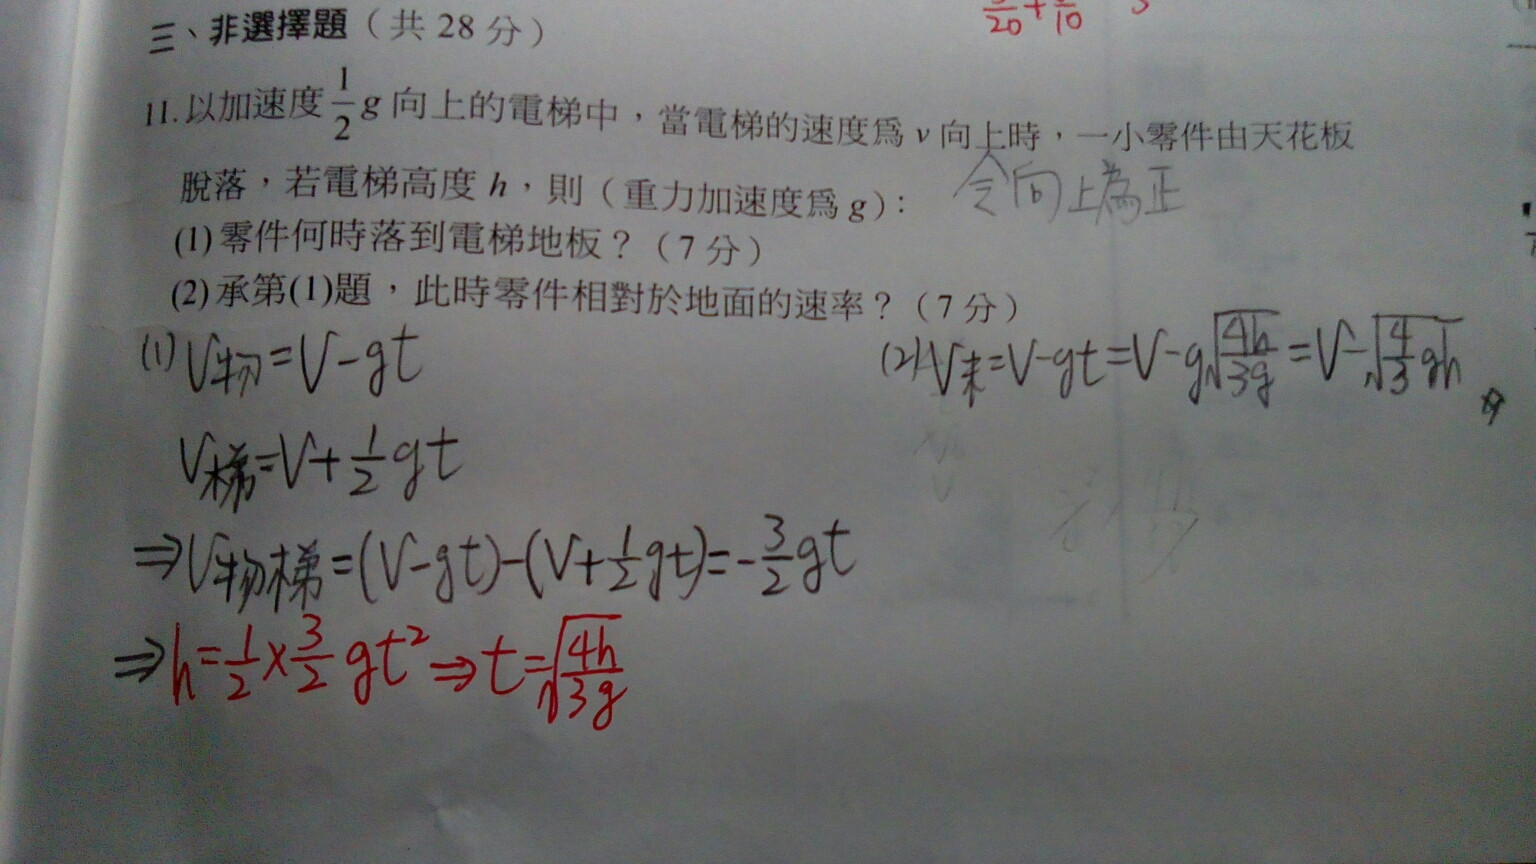 三、非選擇題（共 28 分）
11. 以加速度 1/2 g 向上的電梯中，當電梯的速度爲 v 向上時，一小零件由天花板
脫落，若電梯高度 h，則（重力加速度爲 g）：
令向上為正
(1) 零件何時落到電梯地板？（7 分）
(2) 承第(1)題，此時零件相對於地面的速率？（7 分）
(1) V物=V-gt
V梯=V+1/2gt
⇒V物梯=(V-gt)-(V+1/2gt)=-3/2gt
⇒h=1/2×3/2gt²⇒t=√(4h/3g)
(2) V末=V-gt=V-g√(4h/3g)=V-√(4/3gh)